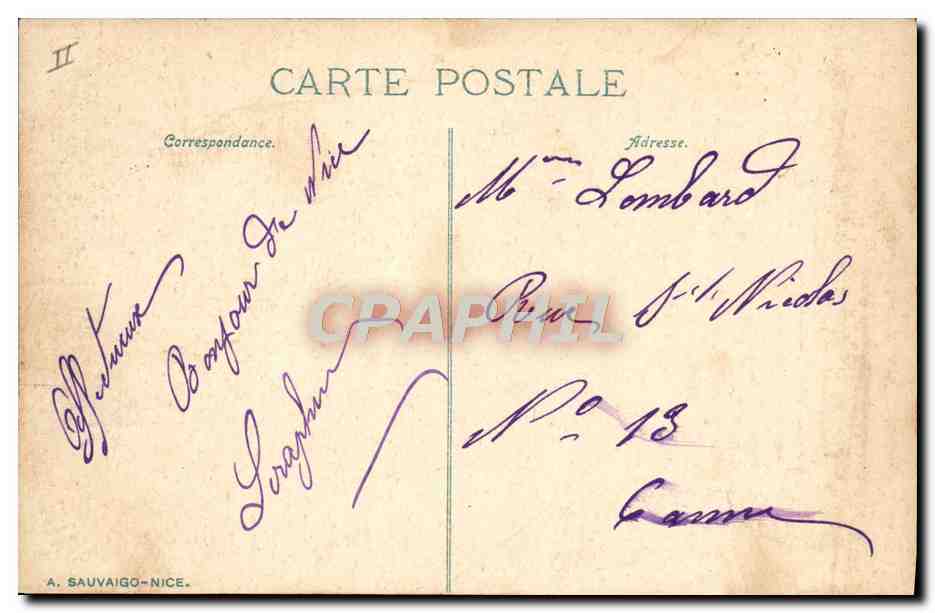 II
CARTE POSTALE
Correspondance.
Affectueux
Bonjour de Nice
Seraphin
Adresse.
Mme Lombard
Rue St Nicolas
No 13
Canne
CPAPHIL
A. SAUVAIGO-NICE.